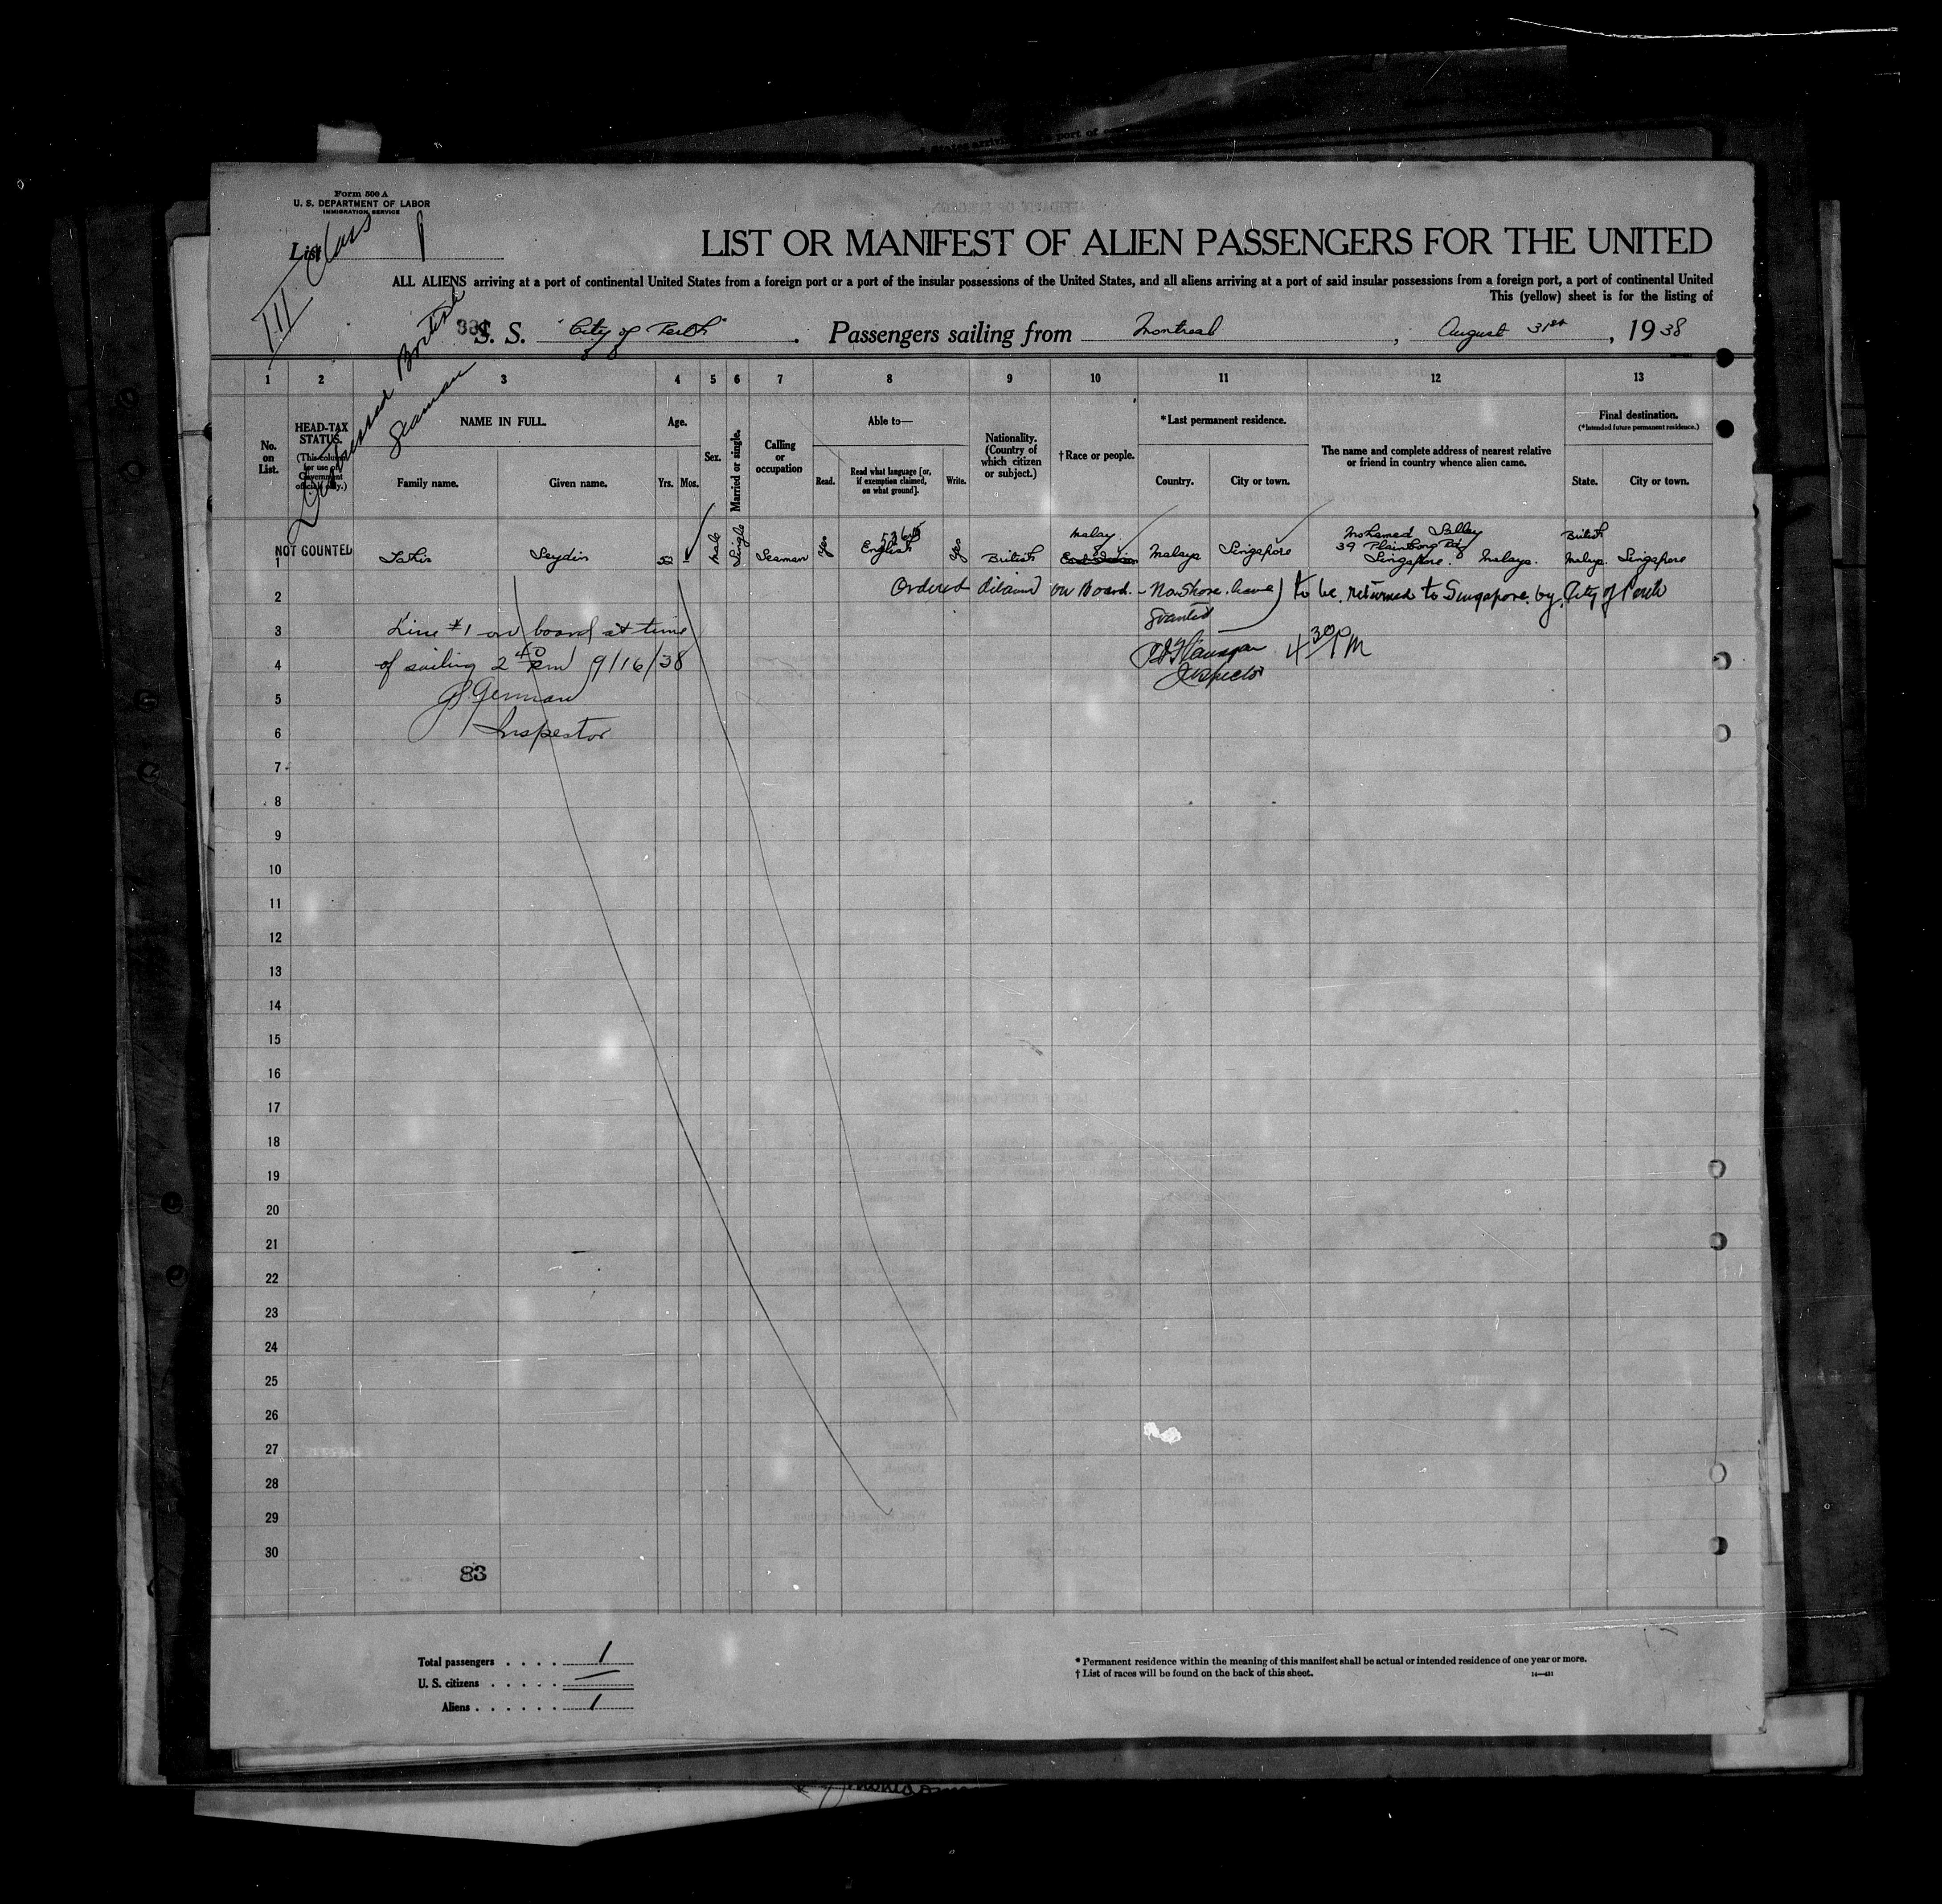 Form 500 A
U. S. DEPARTMENT OF LABOR
IMMIGRATION SERVICE
List 1
III Class
LIST OR MANIFEST OF ALIEN PASSENGERS FOR THE UNITED
ALL ALIENS arriving at a port of continental United States from a foreign port or a port of the insular possessions of the United States, and all aliens arriving at a port of said insular possessions from a foreign port, a port of continental United
This (yellow) sheet is for the listing of
S. S. "City of Perth". Passengers sailing from Montreal, August 31st, 1938
Distressed British
Seaman
1 2 3 4 5 6 7 8 9 10 11 12 13
No. on List.
HEAD-TAX STATUS.
(This column for use of Government officials only.)
NAME IN FULL.
Family name. Given name.
Age.
Yrs. Mos.
Sex.
Married or single.
Calling or occupation
Able to—
Read. Read what language [or, if exemption claimed, on what ground]. Write.
Nationality. (Country of which citizen or subject.)
† Race or people.
*Last permanent residence.
Country. City or town.
The name and complete address of nearest relative or friend in country whence alien came.
Final destination.
(*Intended future permanent residence.)
State. City or town.
NOT COUNTED
1 Tahir Seydin 52 Male Single Seaman Yes English Yes British Malay Malaya Singapore Mohamed Salley 39 Rd Singapore. Malaya. British Malaya. Singapore
2 Ordered detained on board. - No shore leave granted) to be returned to Singapore by City of Perth
3 Line #1 on board at time
4 of sailing 2 40 pm 9/16/38
4 30 PM
Inspector
5 German
6 Inspector
7
8
9
10
11
12
13
14
15
16
17
18
19
20
21
22
23
24
25
26
27
28
29
30
83
Total passengers . . . . 1
U. S. citizens . . . . . —
Aliens . . . . . . 1
* Permanent residence within the meaning of this manifest shall be actual or intended residence of one year or more.
† List of races will be found on the back of this sheet.
14—421